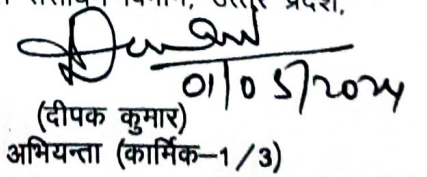 उत्तर प्रदेश,
01/05/2024
(दीपक कुमार)
अभियन्ता (कार्मिक–1/3)